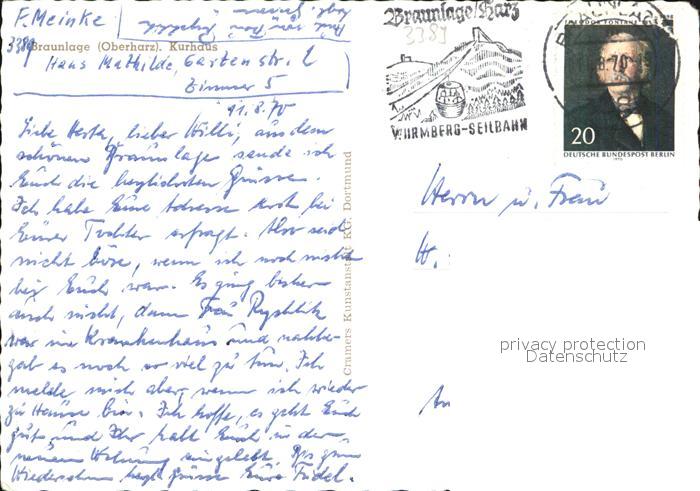 F. Meinke
3389 Braunlage (Oberharz). Kurhaus
Haus Mathilde, Gartenstr. 2
Zimmer 5
11.8.70
Liebe Herta, lieber Willi, aus dem
schönen Braunlage sende ich
Euch die herzlichsten Grüsse.
Ich habe Eure Adresse erst bei
Eurer Tochter erfragt. Also seid
nicht böse, wenn ich noch nicht
bei Euch war. Es ging bisher
auch nicht, denn Frau
war im Krankenhaus und nachher
gab es noch so viel zu tun. Ich
melde mich aber, wenn ich wieder
zu Hause bin. Ich hoffe, es geht Euch
gut und Ihr habt Euch in der
neuen Wohnung eingelebt. Bis zum
Wiedersehen herzl. Grüsse Eure
Cramers Kunstanstalt KG. Dortmund
Braunlage/Harz
3389
WURMBERG-SEILBAHN
20
DEUTSCHE BUNDESPOST BERLIN
1970
Herrn u. Frau
W.
An
privacy protection
Datenschutz